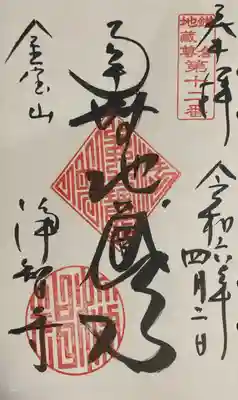 奉拝
鎌倉
地蔵尊第十二番
令和六年四月二日
地蔵尊
金宝山
浄智寺